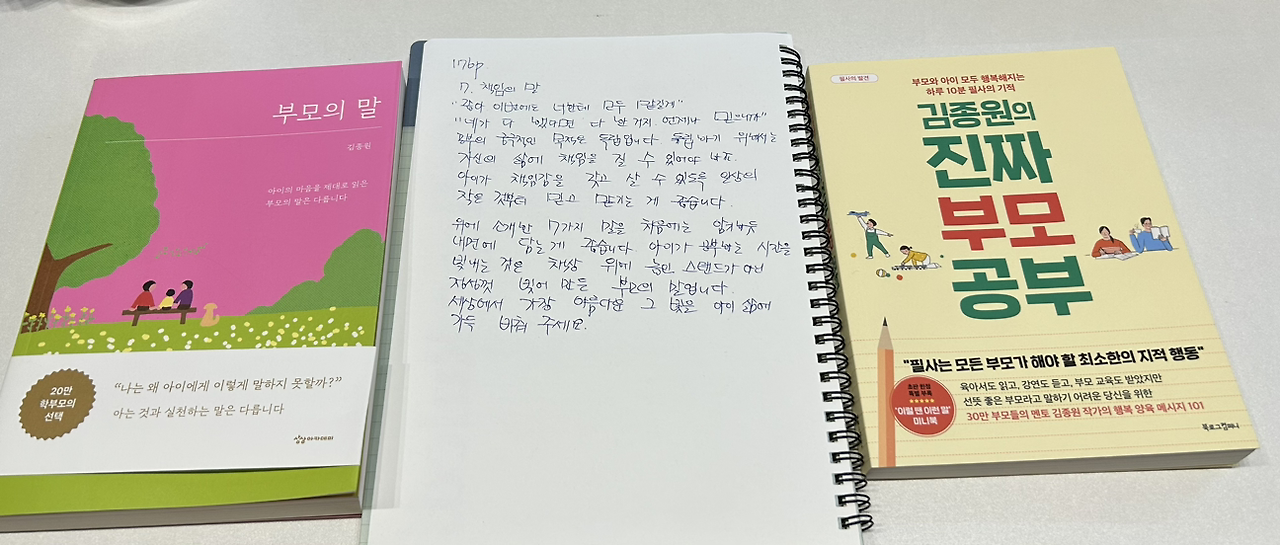 부모의 말
김종원
아이의 마음을 제대로 읽은
부모의 말은 다릅니다
20만
학부모의
선택
"나는 왜 아이에게 이렇게 말하지 못할까?"
아는 것과 실천하는 말은 다릅니다
상상아카데미
176p.
7. 책임의 말
"이번에는 너한테 모두 맡길게"
"네가 다 했다면 다 한 거지. 언제나 믿으니까"
공부의 궁극적인 목적은 독립입니다. 독립하기 위해서는
자신의 삶에 책임을 질 수 있어야 하죠.
아이가 책임감을 갖고 살 수 있도록 일상의
작은 것부터 믿고 맡기는 게 좋습니다.
위에 소개한 7가지 말을 처음에는 암기하듯
내면에 담는 게 좋습니다. 아이가 공부하는 시간을
빛내는 것은 책상 위에 놓인 스탠드가 아닌
자상한 빛이 만든 부모의 말입니다.
세상에서 가장 아름다운 그 빛을 아이 삶에
가득 비춰 주세요.
필사의 발견
부모와 아이 모두 행복해지는
하루 10분 필사의 기적
김종원의
진짜
부모
공부
"필사는 모든 부모가 해야 할 최소한의 지적 행동"
초판 한정
특별 부록
'이럴 땐 이런 말'
미니북
육아서도 읽고, 강연도 듣고, 부모 교육도 받았지만
선뜻 좋은 부모라고 말하기 어려운 당신을 위한
30만 부모들의 멘토 김종원 작가의 행복 양육 메시지 101
북로그컴퍼니